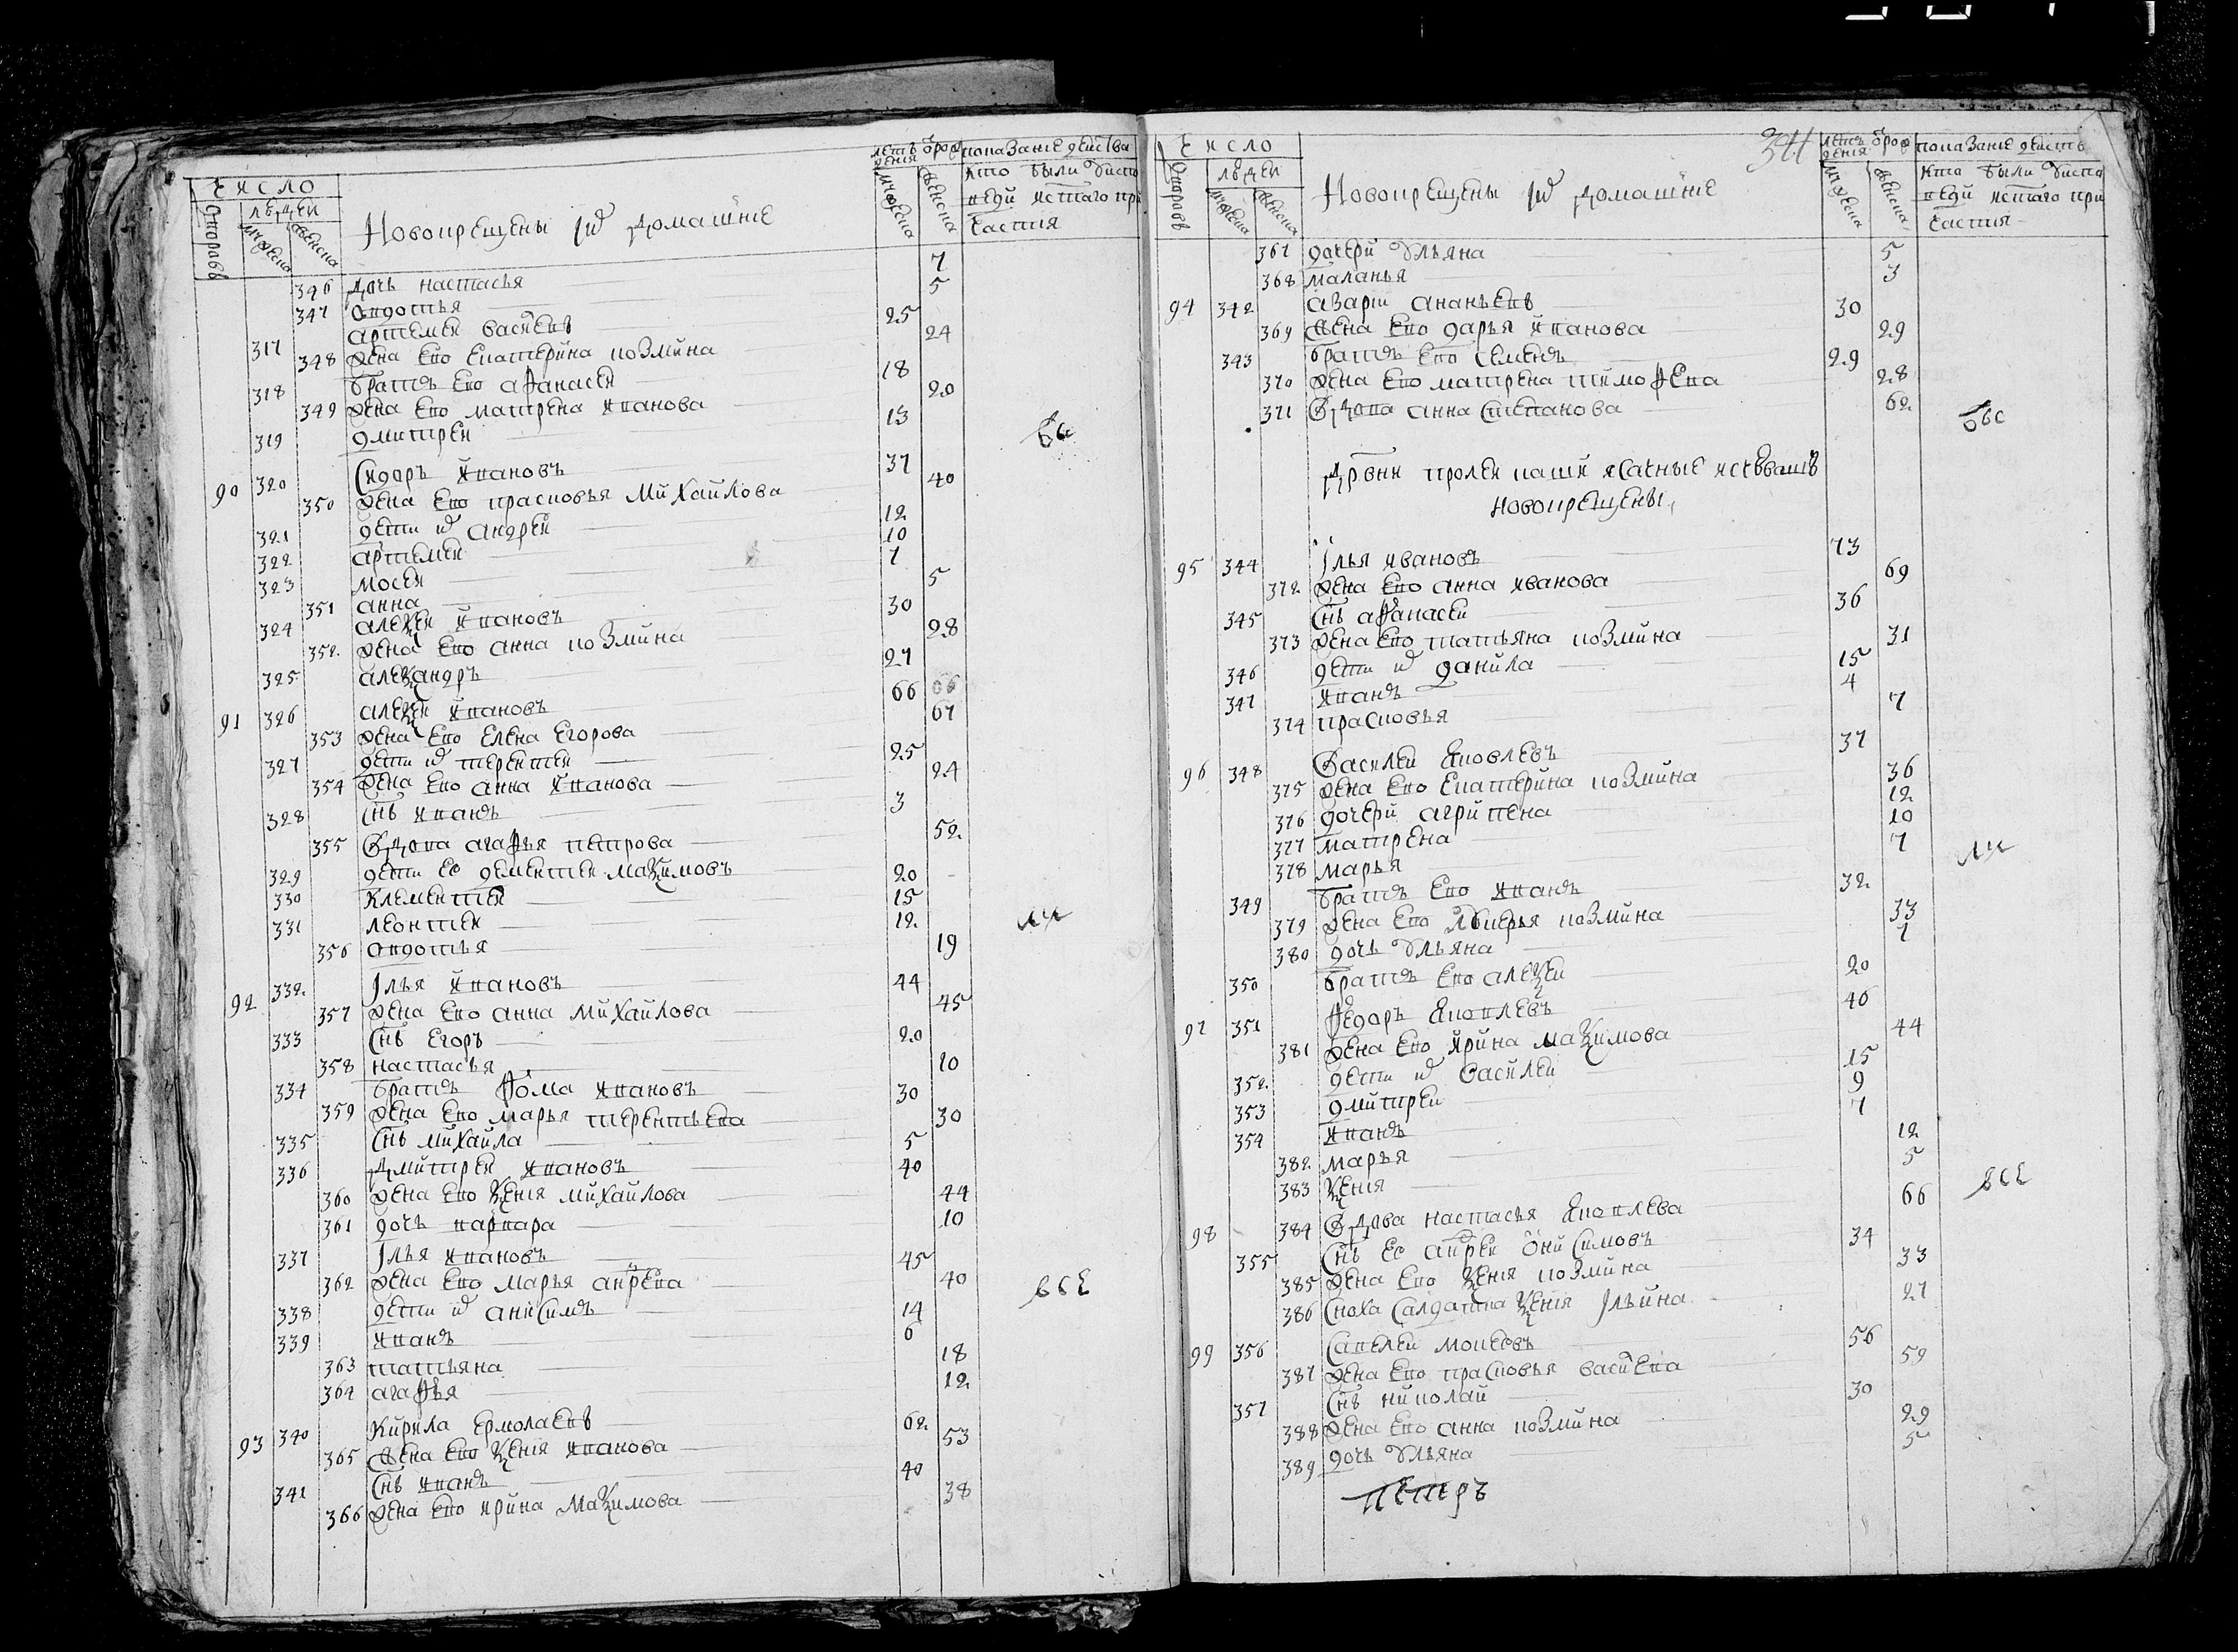 Число
людей
Новокрещены и домашние
346 Дочь настасья 7
347 Овдотья 5
317 артемей васиевъ 25
348 Жена Ево Екатерина козмина 24
318 братъ Ево афанасей 18
349 Жена Ево матрена иванова 20
319 дмитрей 13
90 320 Сидоръ ивановъ 37
350 Жена Ево прасковья Михайлова 40
321 дети и андрей 12
322 артемей 10
323 мосей 7
351 анна 5
324 алеѯей ивановъ 30
352 Жена Ево анна козмина 28
325 алеѯандръ 27
91 326 алеѯей ивановъ 66
353 Жена Ево Елена Егорова 67
327 дети и терентей 25
354 Жена Ево анна иванова 24
328 Снъ иванъ 3
355 Вдова агафья петрова 52
329 дети Ее дементей маѯимовъ 20
330 Клементей 15
331 леонтей 12
356 Овдотья 19
92 332 Илья ивановъ 44
357 Жена Ево анна Михайлова 45
333 Снъ Егоръ 20
358 настасья 10
334 братъ фома ивановъ 30
359 Жена Ево марья терентьева 30
335 Снъ михайла 5
336 Дмитрей ивановъ 40
360 Жена Ево ѯения михайлова 44
361 дочь варвара 10
337 Илья ивановъ 45
362 Жена Ево марья анрева 40
338 дети и анисимъ 14
все
339 иванъ 6
363 татьяна 18
364 агафья 12
93 340 Кирила Ермолаевъ 62
365 Жена Ево ѯения иванова 53
341 Снъ иванъ 40
366 Жена Ево ирина Маѯимова 38
Число
людей
Новокрещены и домашние
367 дочери Ульяна 5
368 маланья 3
94 342 азари ананьевъ 30
369 Жена Ево дарья иванова 29
343 братъ Ево Семенъ 29
370 Жена Ево матрена тимофева 28
371 Вдова анна Степанова 62
новокрещены
95 344 Илья ивановъ 73
372 Жена Ево анна иванова 69
345 Снъ афанасей 36
373 Жена Ево татьяна козмина 31
346 дети и данила 15
347 иванъ 4
374 прасковья 7
96 348 Василей Яковлевъ 37
375 Жена Ево Екатерина козмина 36
376 дочери агрипена 12
377 матрена 10
378 марья 7
349 братъ Ево иванъ 32
379 Жена Ево лукерья козмина 33
380 дочь Ульяна 1
350 братъ Ево алеѯей 20
97 351 федоръ Яковлевъ 46
381 Жена Ево ирина маѯимова 44
352 дети и Василей 15
353 дмитрей 9
354 иванъ 7
382 марья 12
383 ѯения 5
все
98 384 Вдова настасья Яковлева 66
355 Снъ Ее анрей Онисимовъ 34
385 Жена Ево ѯения козмина 33
386 Сноха Салдатка ѯения Ильина 27
99 356 Савелей мокеевъ 56
387 Жена Ево прасковья васиева 59
357 Снъ николай 30
388 Жена Ево анна козмина 29
389 дочь Ульяна 5
Петръ